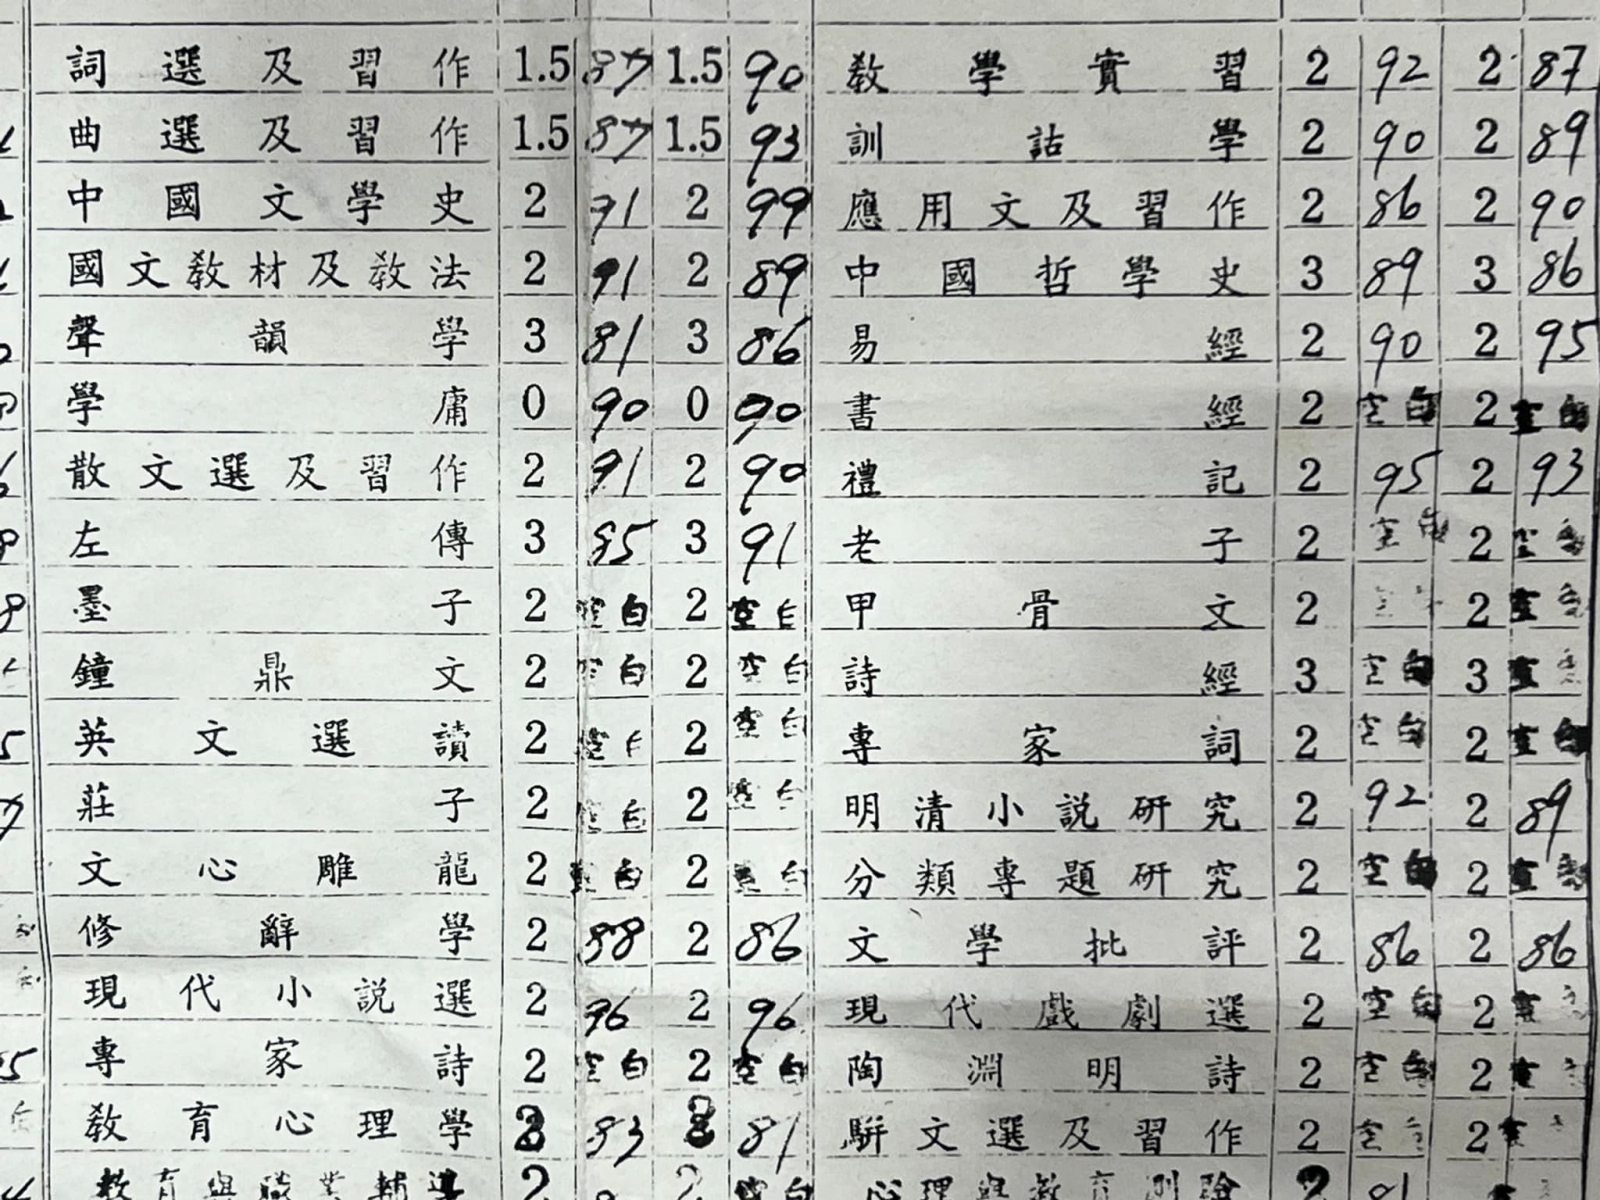 詞選及習作 1.5 87 1.5 90 教學實習 2 92 2 87
曲選及習作 1.5 87 1.5 93 訓詁學 2 90 2 89
中國文學史 2 91 2 99 應用文及習作 2 86 2 90
國文教材及教法 2 91 2 89 中國哲學史 3 89 3 86
聲韻學 3 81 3 86 易經 2 90 2 95
學庸 0 90 0 90 書經 2 空白 2 空白
散文選及習作 2 91 2 90 禮記 2 95 2 93
左傳 3 3 91 老子 2 空白 2 空白
墨子 2 空白 2 空白 甲骨文 2 2 空白
鐘鼎文 2 空白 2 空白 詩經 3 空白 3 空
英文選讀 2 空白 2 空白 專家詞 2 空白 2 空白
莊子 2 空白 2 空白 明清小說研究 2 92 2 89
文心雕龍 2 空白 2 空白 分類專題研究 2 空白 2 空白
修辭學 2 88 2 86 文學批評 2 86 2 86
現代小說選 2 96 2 96 現代戲劇選 2 空白 2 空
專家詩 2 空白 2 空白 陶淵明詩 2 空白 2 空
教育心理學 83 81 駢文選及習作 2 空白 2
教育與職業輔導 2 2 空白 心理與教育測驗 2